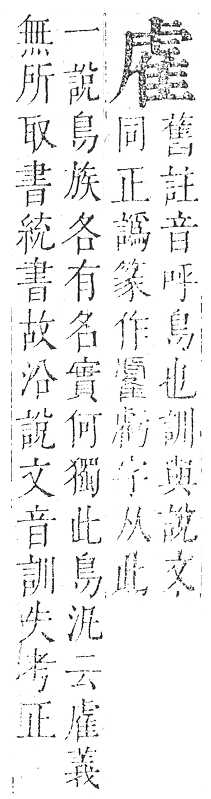 雐舊註音呼鳥也訓與說文
同正譌篆作𩁹虧字从此
一說鳥族各有名實何獨此鳥汎云雐義
無所取書統書故沿說文音訓失考正